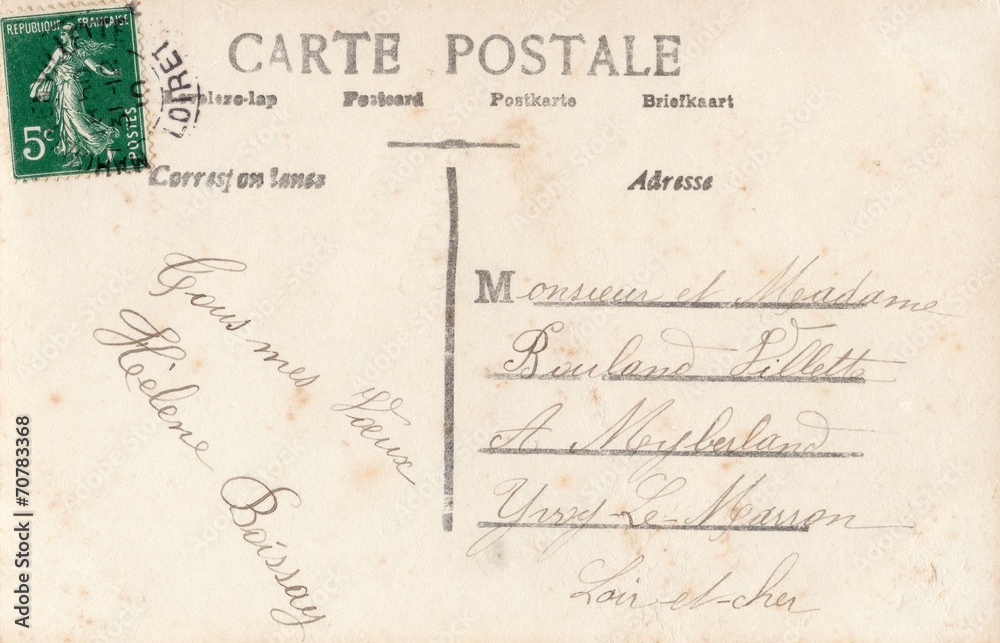 REPUBLIQUE FRANÇAISE
5c
POSTES
LOIRET
CARTE POSTALE
Postcard Postkarte Briefkaart
Adresse
Tous mes Vœux
Hélène Boissay
Monsieur et Madame
Bouland Villette
A Myberland
Yvoy-Le-Marron
Loir-et-cher
Adobe Stock | #70783368